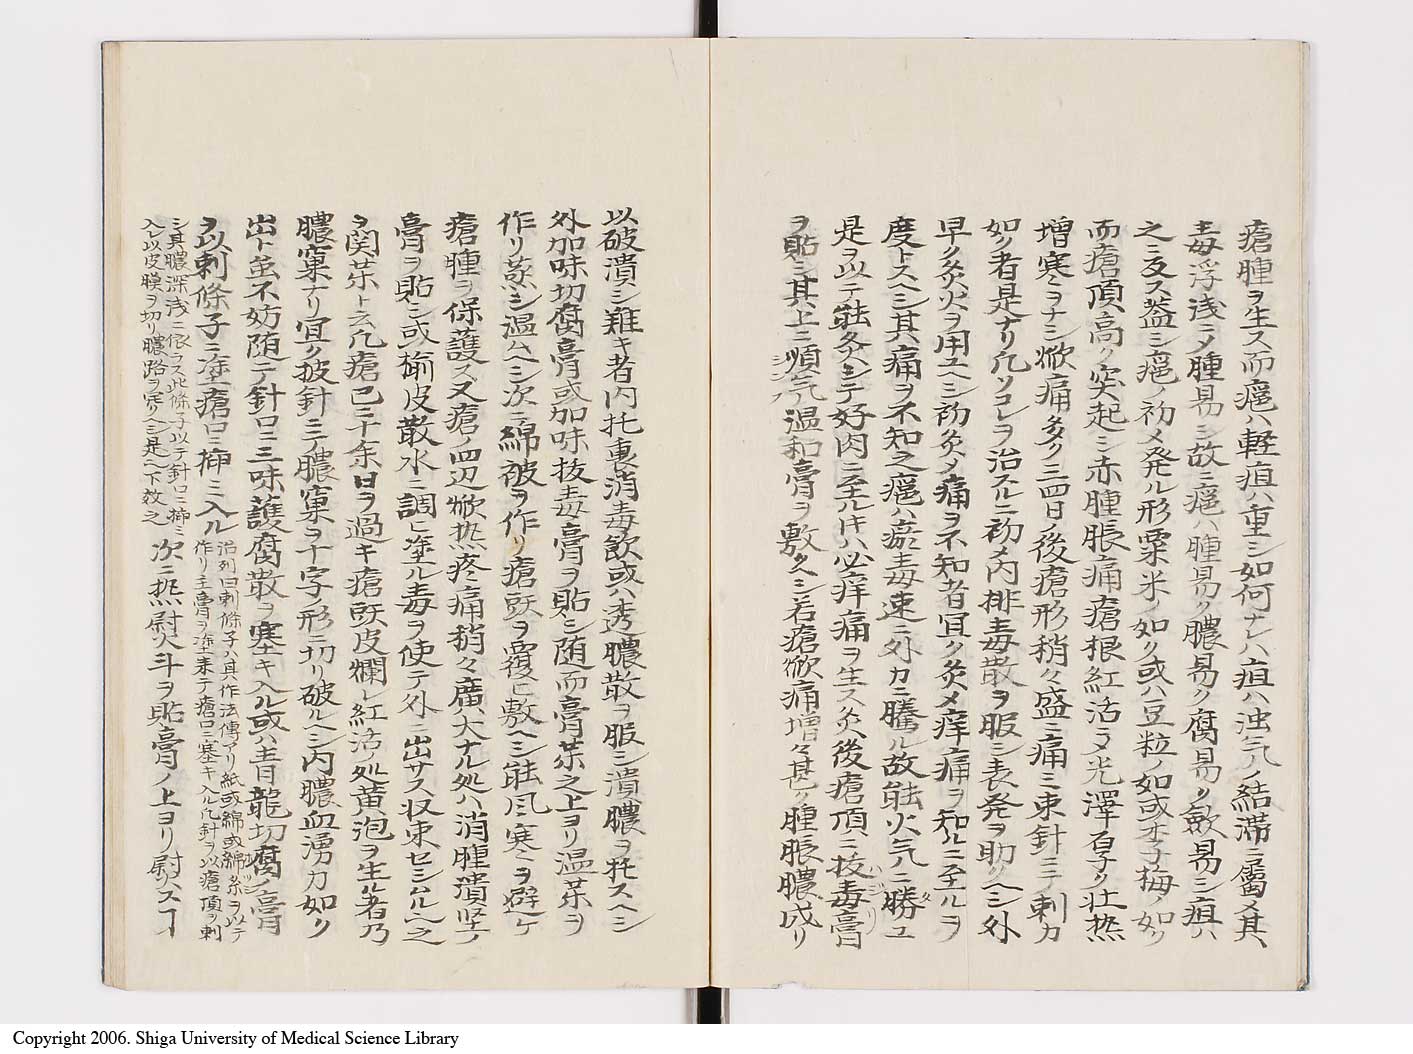 瘡腫ヲ生ス而瘟ハ軽疽ハ重シ如何ナレハ疽ハ浊気ノ結滞ニ属メ其ハ
毒浮浅ラメ腫易シ故ニ瘟ハ腫易ク膿易ク腐易ク歛易シ疽ハ
之ニ反ス蓋シ瘟ノ初メ発ル形粟米ノ如ク或ハ豆粒ノ如或ハ子梅ノ如ク
而瘡頂高ク突起シ赤腫脹痛瘡根紅活ラメ光澤有リ壮热
増寒ヲナシ焮痛多ク三四日ノ後瘡形稍々盛ニ痛ミ束針ニテ刺カ
如ク者是ナリ凡ソコレヲ治スルニ初メ内排毒散ヲ服シ表発ヲ助クヘシ外
早ク灸火ヲ用ユヘシ初灸ノ痛ヲ不知者宜ク灸メ痒痛ヲ知ルニ至ルヲ
度トスヘシ其痛ヲ不知之瘟ハ瘀毒速ニ外カニ騰ル故能火気ニ勝ユ
是ヲ以テ能灸シテ好肉ニ至ルキハ必痒痛ヲ生ス灸後瘡頂ニ抜毒膏
ヲ貼シ其上ニ順気温和膏ヲ敷クヘシ若瘡焮痛増々甚ク腫脹膿成リ
以破潰シ難キ者内托裏消毒飲或ハ透膿散ヲ服シ潰膿ヲ托スヘシ
外加味切腐膏或加味抜毒膏ヲ貼シ随而膏茶之上ヨリ温茶ヲ
作リ蒸シ温ムヘシ次ニ綿被ヲ作リ瘡頭ヲ覆ヒ敷ヘシ能風寒ヲ避ケ
瘡腫ヲ保護ス又瘡ノ四辺焮热疼痛稍々廣大ナル処ハ消腫潰堅ノ
膏ヲ貼シ或榆皮散水ニ調ヒ塗ル毒ヲ使テ外ニ出サス収束セシムル之
ヲ関茶ト云凡瘡已ニ十余日ヲ過キ瘡頭皮爛レ紅活ノ処黄泡ヲ生ル者乃
膿窠ナリ宜ク披針ニテ膿窠ヲ十字ノ形ニ切リ破ルヘシ内膿血湧カ如ク
出ト虽不妨随テ針口ニ三味護腐散ヲ塞キ入ル或ハ青龍切腐ノ膏
ヲ以刺條子ニ塗瘡口ニ挿ミ入ル
治列曰刺條子ハ其作法傳アリ紙或綿或綿糸ヲ以テ
作リ主膏ヲ塗来テ瘡口ニ塞キ入ル凡針ヲ以瘡頂ヲ刺
シ其膿深浅ニ依ラス此條子ヲ以テ針口ニ挿ミ
入レ以皮膜ヲ切リ膿路ヲ寒クヘシ是ヘ下效之
次ニ热尉火斗ヲ貼膏ノ上ヨリ尉スヿ
Copyright 2006. Shiga University of Medical Science Library